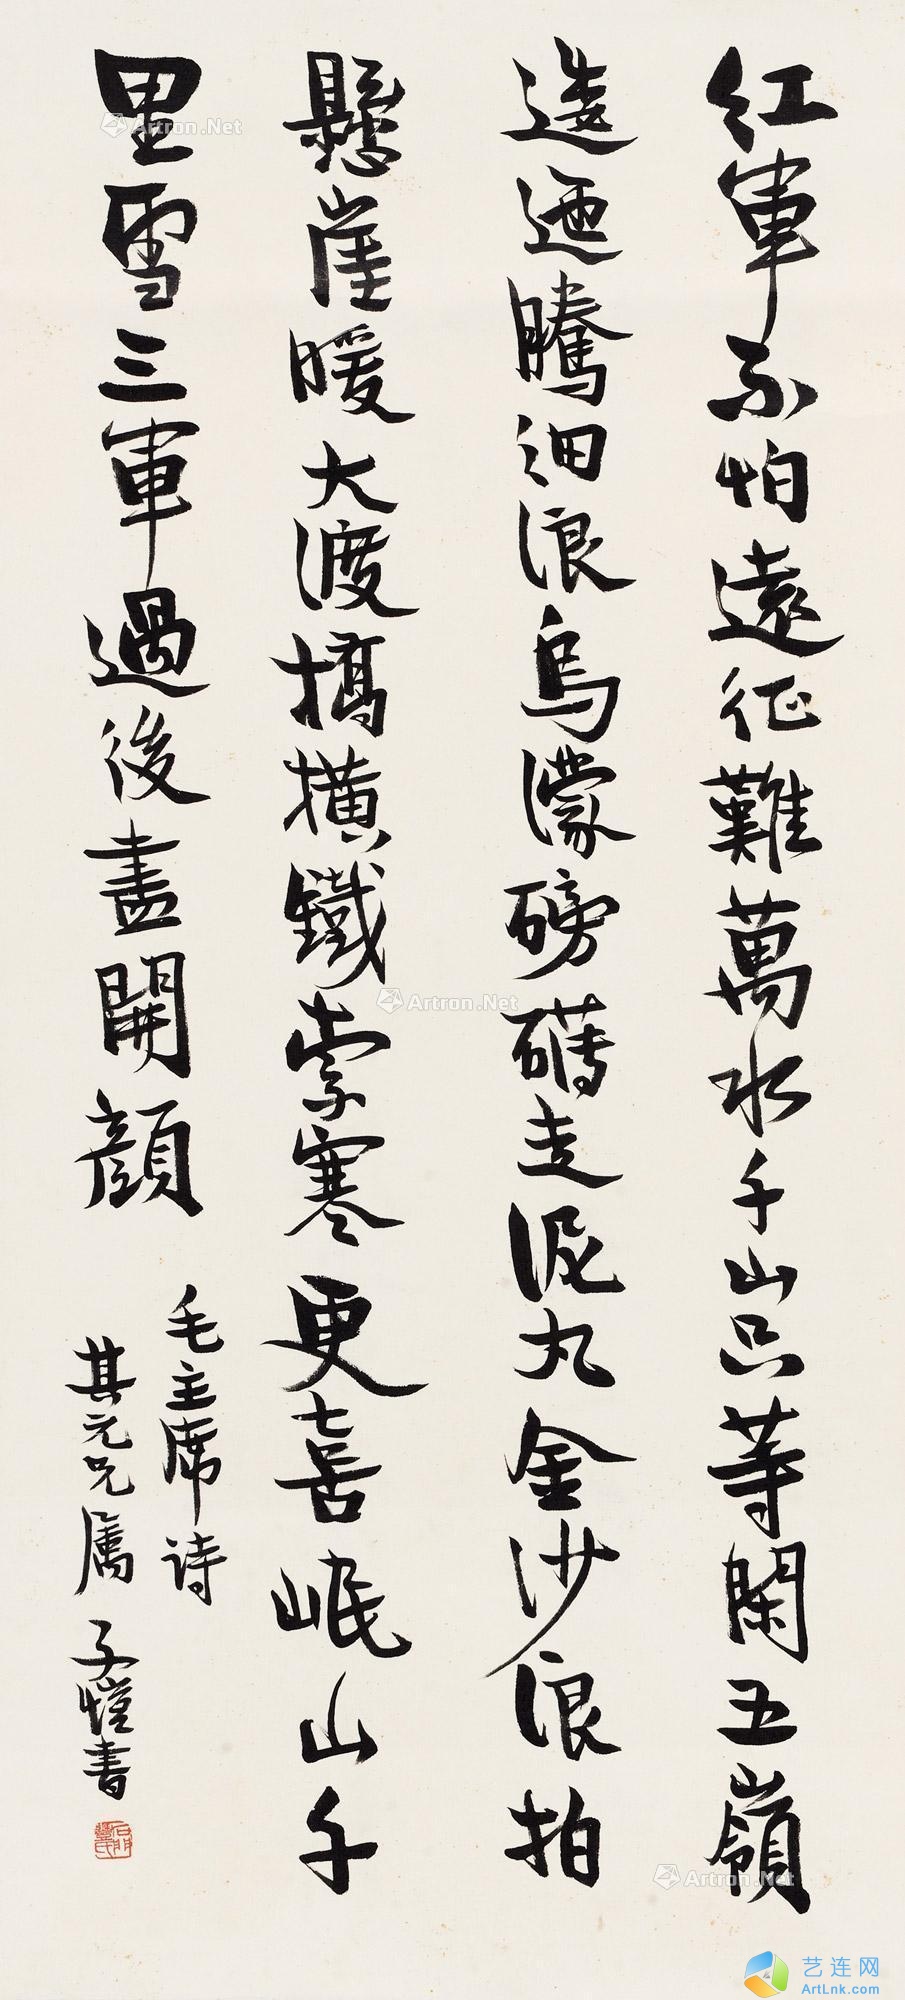 紅軍不怕遠征難萬水千山只等閑五嶺
逶迤騰細浪烏濛磅礴走泥丸金沙浪拍
懸崖暖大渡橋橫鐵索寒更喜岷山千
里雪三軍過後盡開顏
毛主席诗
其元兄属 子愷書
石門豐氏
Artron.Net
Artron.Net
Artron.Net
艺连网
ArtLnk.com